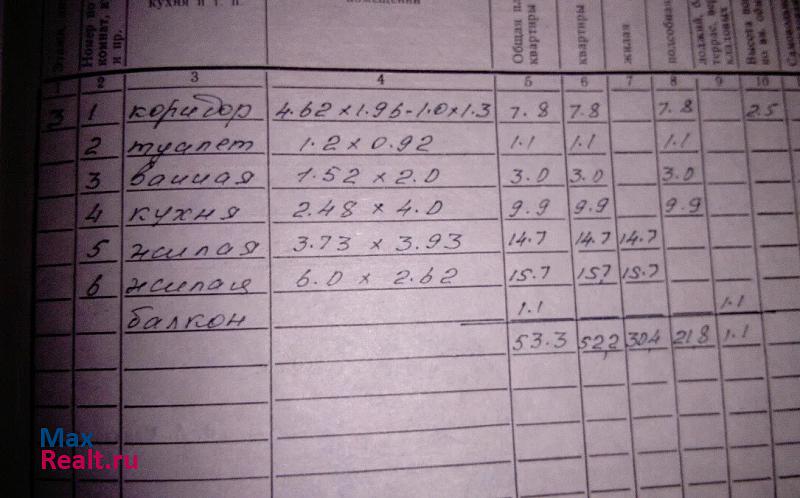 кухня и т. п.
помещения
Общая
квартиры
квартиры
жилая
подсобная
террас,
кладовых
Высота
3 4 5 6 7 8 9 10
3 1 коридор 4.62 × 1.96 - 1.0 × 1.3 7.8 7.8 7.8 2.5
2 туалет 1.2 × 0.92 1.1 1.1 1.1
3 ванная 1.52 × 2.0 3.0 3.0 3.0
4 кухня 2.48 × 4.0 9.9 9.9 9.9
5 жилая 3.73 × 3.93 14.7 14.7 14.7
6 жилая 6.0 × 2.62 15.7 15.7 15.7
балкон 1.1 1.1
53.3 52,2 30,4 21,8 1.1
Max
Realt.ru